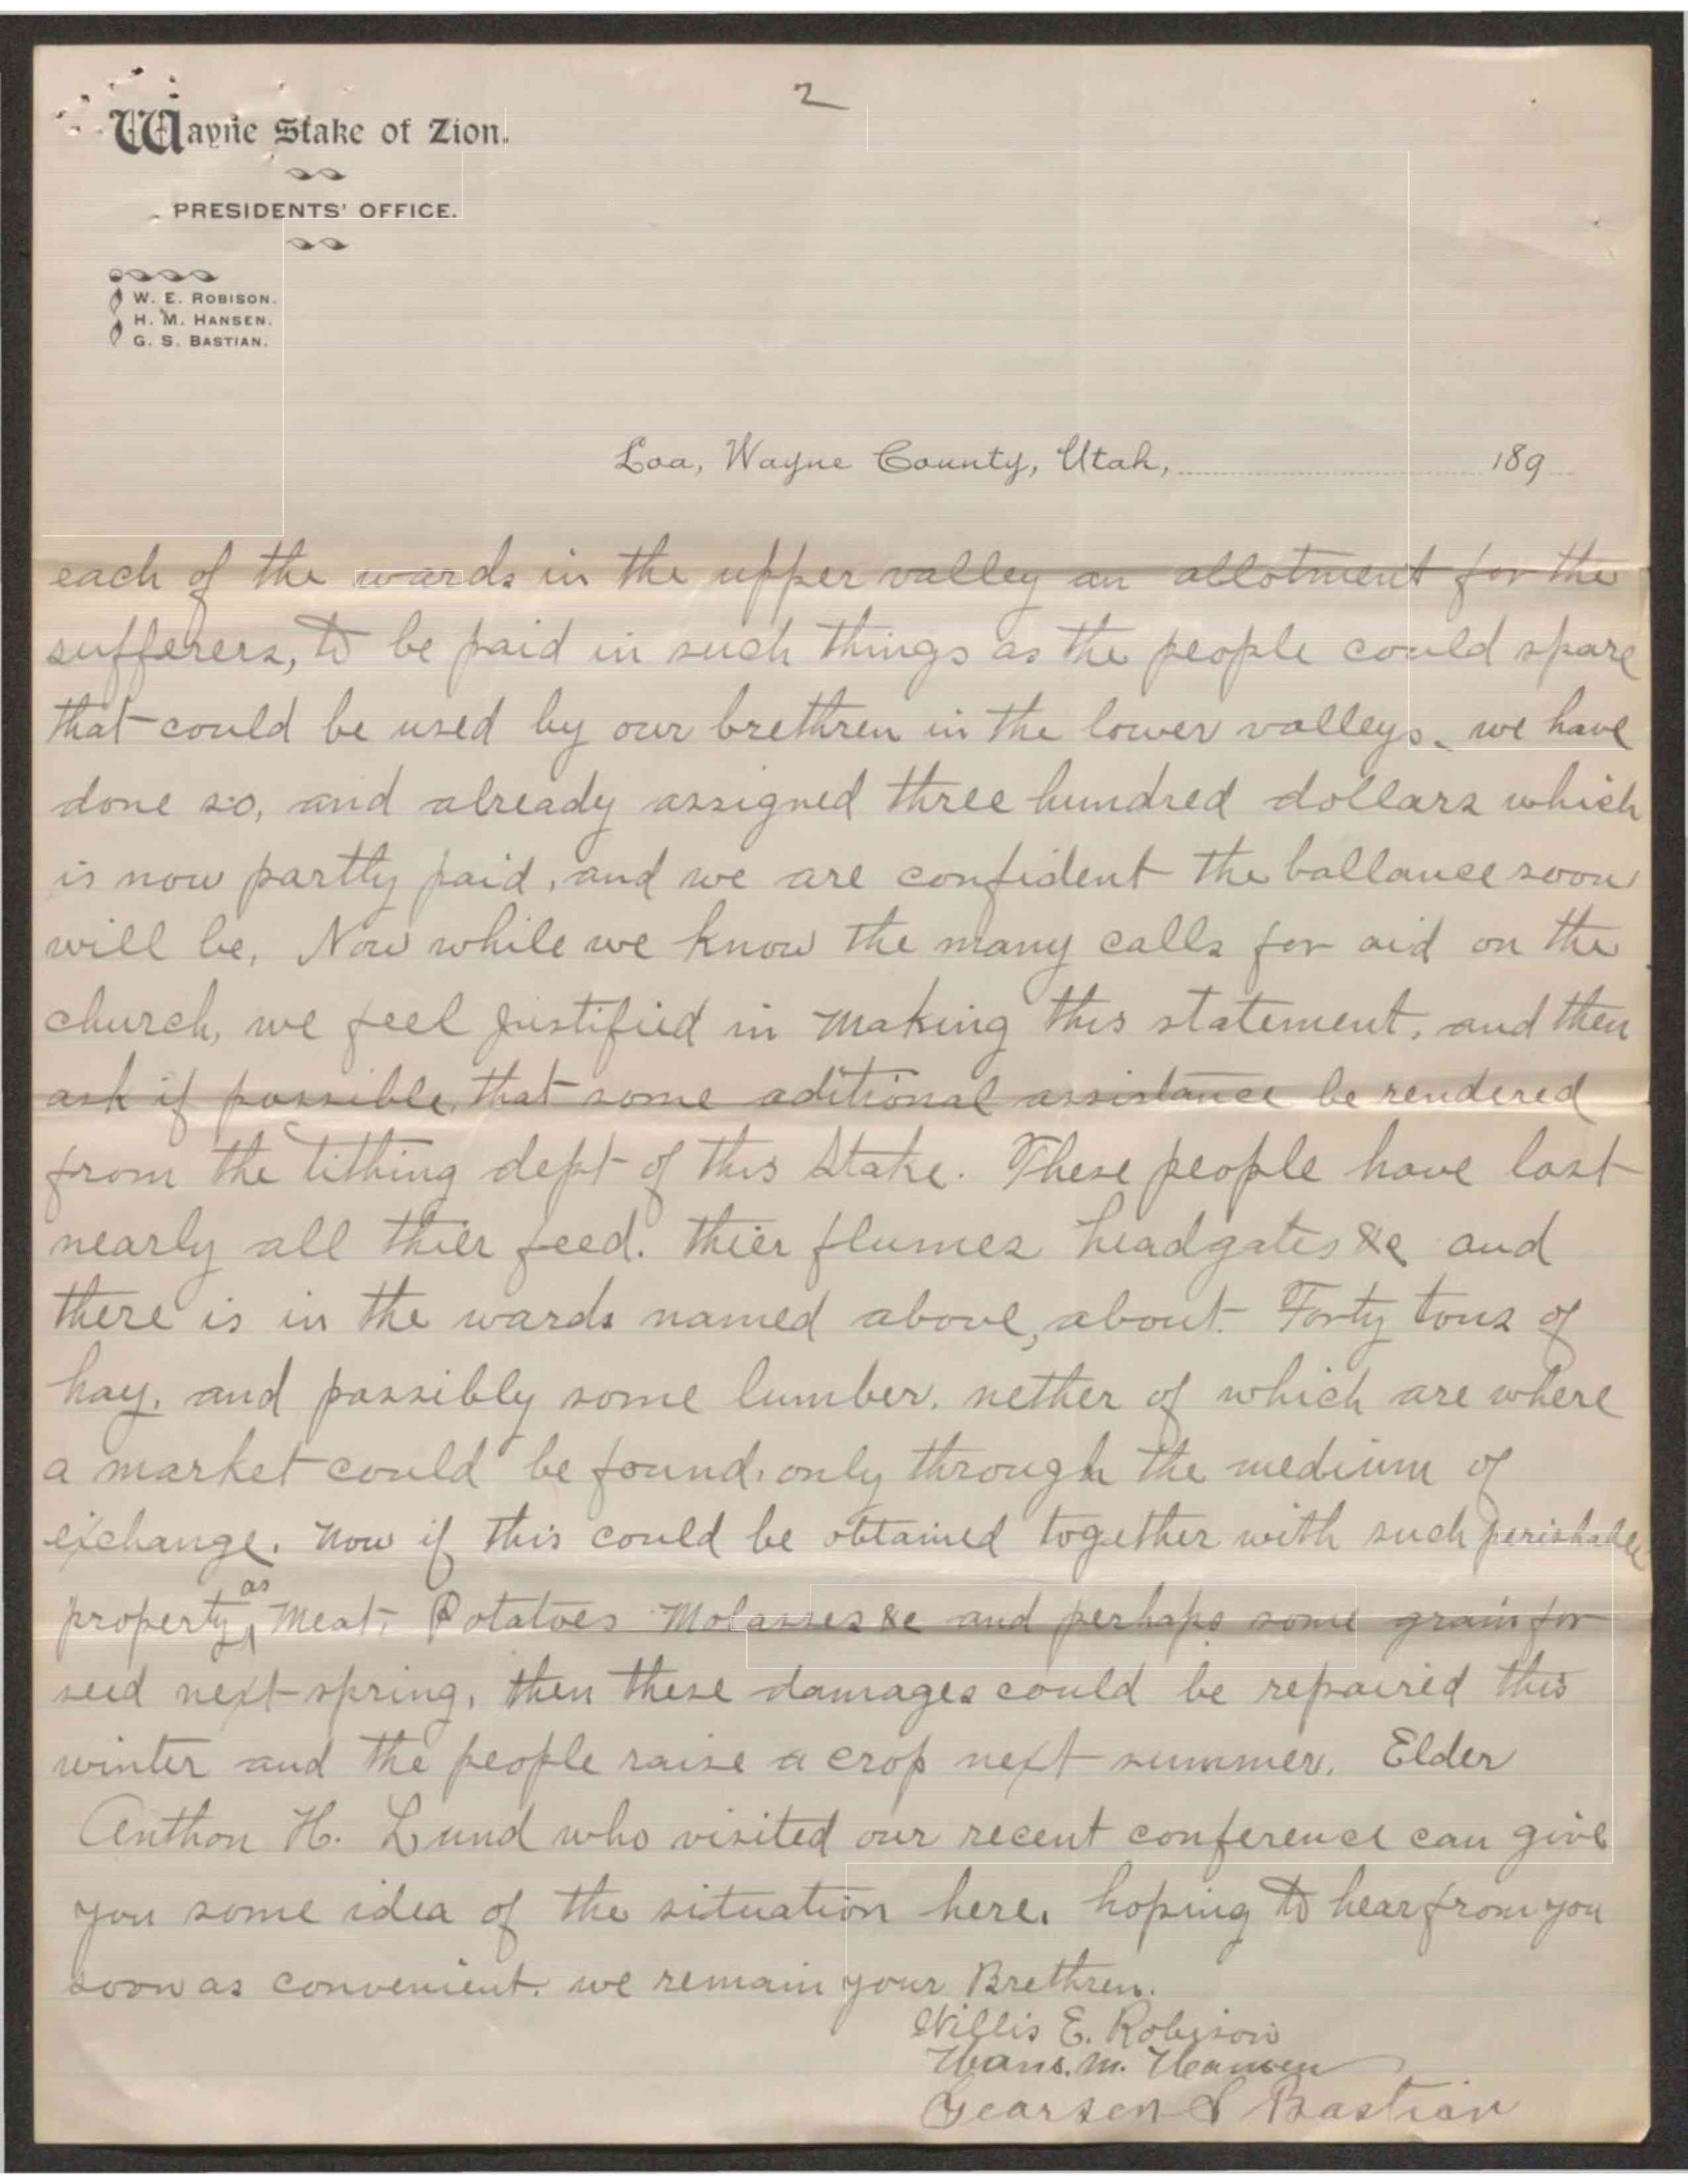 2
Wayne Stake of Zion.
PRESIDENTS' OFFICE.
W. E. ROBISON.
H. M. HANSEN.
G. S. BASTIAN.
Loa, Wayne County, Utah, 189
each of the wards in the upper valley an allotment for the
sufferers, to be paid in such things as the people could spare
that could be used by our brethren in the lower valleys. we have
done so, and already assigned three hundred dollars which
is now partly paid, and we are confident the ballance soon
will be, Now while we know the many calls for aid on the
church, we feel justified in making this statement, and then
ask if possible, that some aditional assistance be rendered
from the tithing dept of this Stake. These people have lost
nearly all thier feed. thier flumes headgates &c and
there is in the wards named above, about Forty tons of
hay, and possibly some lumber, nether of which are where
a market could be found, only through the medium of
exchange. Now if this could be obtained together with such perishable
as
property, Meat, Potatoes Molasses &c and perhaps some grain for
seed next spring, then these damages could be repaired this
winter and the people raise a crop next summer. Elder
Anthon H. Lund who visited our recent conference can give
you some idea of the situation here. hoping to hear from you
soon as convenient. we remain your Brethren.
Willis E. Robison
Hans. M. Hansen
Gearsen S Bastian